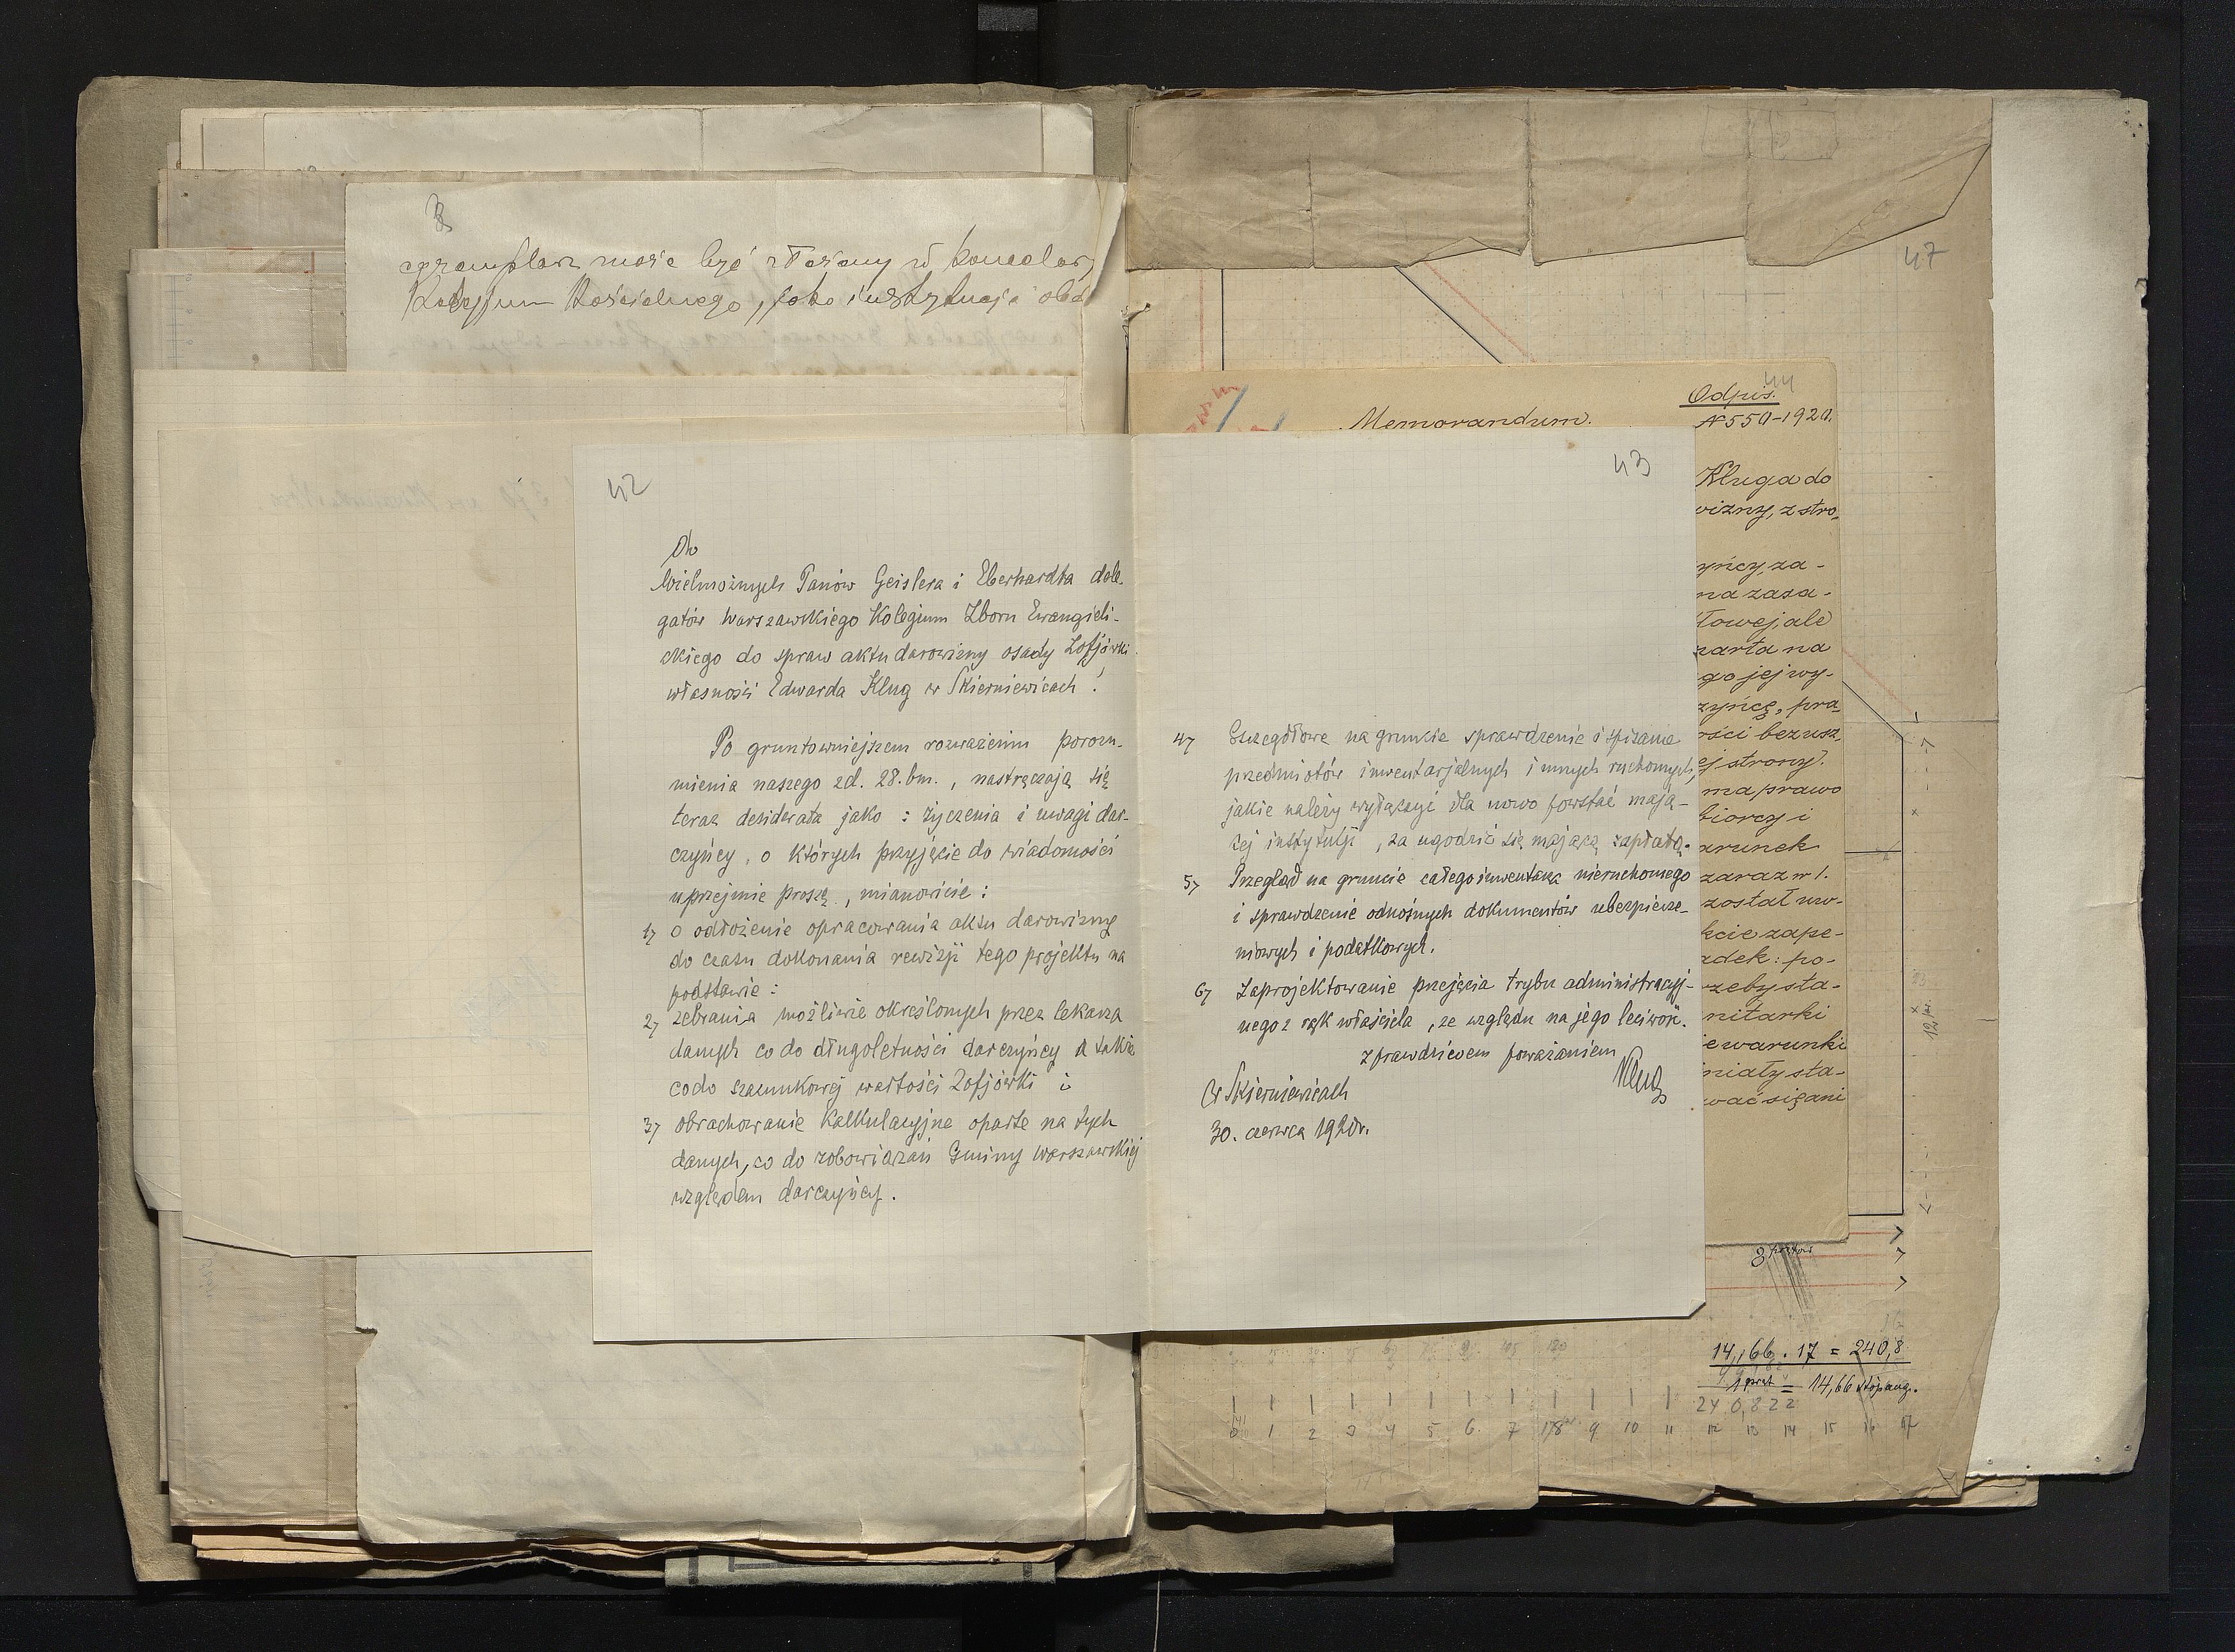 3
egzemplarz może być złożony w kancelarj
Kolegjum Kościelnego, jako instytucja
47
44
Odpis.
N 550-1920.
Memorandum.
Kluga do
wizny, z stro-
yńcy, za-
na zasa-
łowej, ale
zarta na
go jej wy-
zyńcę, pra-
ści bez usz.
ej strony.
ma prawo
biorcy i
arunek
zaraz w 1.
został uw-
kcie zape-
adek: po-
rzeby sta-
nitarki
e warunki
niały sta-
wać się ani
42
Do
Wielmożnych Panów Geislera i Eberhardta dele-
gatów Warszawskiego Kolegium Zboru Ewangieli-
ckiego do spraw aktu darowizny osady Zofjówki
własności Edwarda Klug w Skierniewicach!
Po gruntowniejszem rozważeniu porozu-
mienia naszego zd. 28. bm., nastręczają się
teraz desiderata jako: życzenia i uwagi dar-
czyńcy, o których przyjęcie do wiadomości
uprzejmie proszę, mianowicie:
1) o odłożenie opracowania aktu darowizny
do czasu dokonania rewizji tego projektu na
podstawie:
2) zebrania możliwie określonych przez lekarza
danych co do długoletności darczyńcy a także
co do szacunkowej wartości Zofjówki i
3) obrachowanie kalkulacyjne oparte na tych
danych, co do zobowiązań Gminy Warszawskiej
względem darczyńcy.
43
4) Szczegółowe na gruncie sprawdzenie i spisanie
przedmiotów inwentarjalnych i innych ruchomych,
jakie należy wyłączyć dla nowo powstać mają-
cej instytucji, za ugodzić się mającą zapłatą.
5) Przegląd na gruncie całego inwentarza nieruchomego
i sprawdzenie odnośnych dokumentów ubezpiecze-
niowych i podatkowych.
6) Zaprojektowanie przejęcia trybu administracyj-
nego z rąk właściciela, ze względu na jego leciwość.
z prawdziwem poważaniem
Klug
W Skierniewicach
30. czerwca 1920 r.
12 pr.
8 prętów
14,166 . 17 = 240,8
1 pręt = 14,66 stóp ang.
240,822
0 1 2 3 4 5 6 7 8 9 10 11 12 13 14 15 16 17